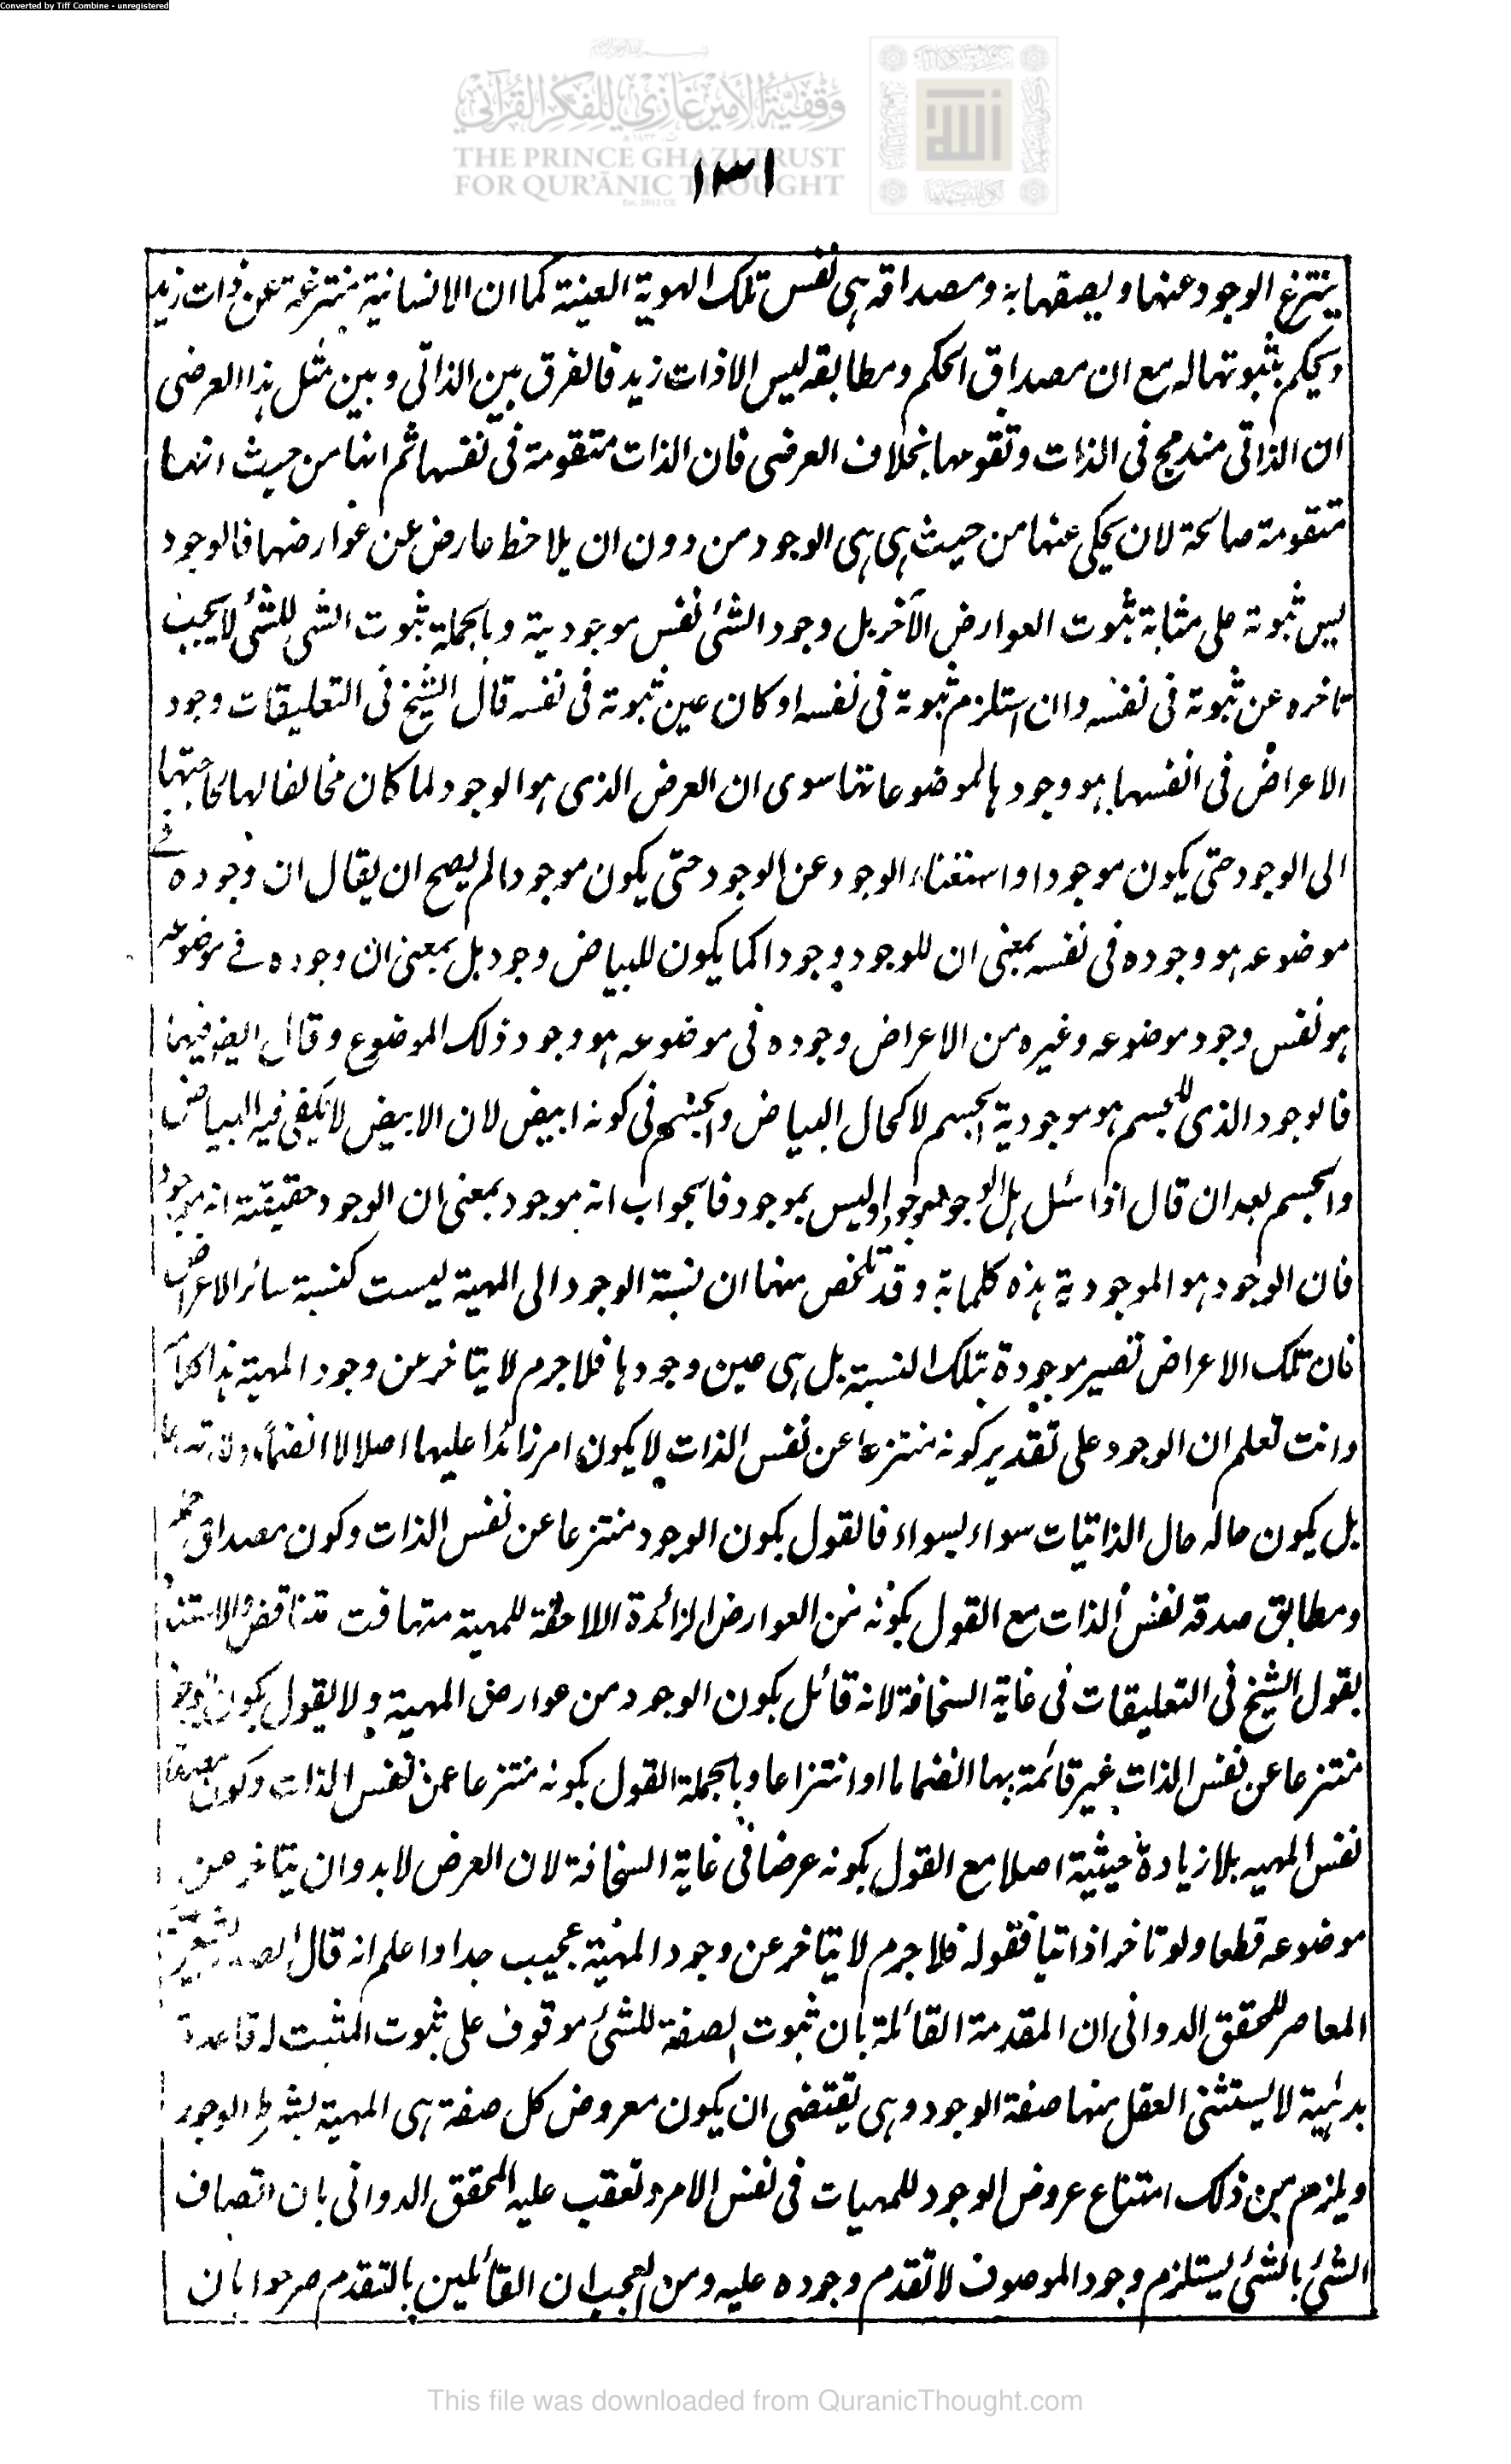 Converted by Tiff Combine - unregistered
وقفية الأمير غازي للفكر القرآني
THE PRINCE GHAZI TRUST
FOR QUR'ĀNIC THOUGHT
Est. 2012 CE
١٣١
ينتزع الوجود عنها ويصفها به ومصداقه هى نفس تلك الهوية العينية كما ان الانسانية منتزعة عن ذات زيد
ويحكم بثبوتها له مع ان مصداق الحكم ومطابقه ليس الا ذات زيد فالفرق بين الذاتى وبين مثل هذا العرضى
ان الذاتى مندمج فى الذات وتقومها بخلاف العرضى فان الذات متقومة فى نفسها ثم انها من حيث انها
متقومة صالحة لان يحكى عنها من حيث هى هى الوجود من دون ان يلاحظ عارض عن عوارضها فالوجود
ليس ثبوته على مثابة ثبوت العوارض الآخر بل وجود الشئ نفس موجوديته وبالجملة ثبوت الشى للشئ لا يجب
تاخره عن ثبوته فى نفسه وان استلزم ثبوته فى نفسه او كان عين ثبوته فى نفسه قال الشيخ فى التعليقات وجود
الاعراض فى انفسها هو وجودها لموضوعاتها سوى ان العرض الذى هو الوجود لما كان مخالفا لها لحاجتها
الى الوجود حتى يكون موجودا واستغناء الوجود عن الوجود حتى يكون موجودا لم يصح ان يقال ان وجوده فى
موضوعه هو وجوده فى نفسه بمعنى ان للوجود وجودا كما يكون للبياض وجود بل بمعنى ان وجوده فى موضوعه
هو نفس وجود موضوعه وغيره من الاعراض وجوده فى موضوعه هو وجود ذلك الموضوع وقال ايضا فيها
فالوجود الذى للجسم هو موجودية الجسم لا كحال البياض والجسم فى كونه ابيض لان الابيض لا يكفى فيه البياض
والجسم بعد ان قال اذا سئل هل الوجود موجود او ليس بموجود فالجواب انه موجود بمعنى ان الوجود حقيقته انه موجود
فان الوجود هو الموجودية هذه كلماته وقد تلخص منها ان نسبة الوجود الى المهية ليست كنسبة سائر الاعراض
فان تلك الاعراض تصير موجودة بتلك النسبة بل هى عين وجودها فلا جرم لا يتاخر عن وجود المهية هذا كلامه
وانت تعلم ان الوجود على تقدير كونه منتزعا عن نفس الذات لا يكون امر زائدا عليها اصلا لا انضماما ولا انتزاعا
بل يكون حاله حال الذاتيات سواء بسواء فالقول بكون الوجود منتزعا عن نفس الذات وكون مصداق حمله
ومطابق صدقه نفس الذات مع القول بكونه من العوارض الزائدة اللاحقة للمهية متهافت متناقض والاستناد
بقول الشيخ فى التعليقات فى غاية السخافة لانه قائل بكون الوجود من عوارض المهية ولا يقول بكون الوجود
منتزعا عن نفس الذات غير قائمة بها انضماما او انتزاعا وبالجملة القول بكونه منتزعا عن نفس الذات وكون مصداقه
نفس المهيه بلا زيادة حيثية اصلا مع القول بكونه عرضا فى غاية السخافة لان العرض لا بد وان يتاخر عن
موضوعه قطعا ولو تاخرا ذاتيا فقوله فلا جرم لا يتاخر عن وجود المهية عجيب جدا واعلم انه قال الصدر الشيرازى
المعاصر للمحقق الدوانى ان المقدمة القائلة بان ثبوت الصفة للشئ موقوف على ثبوت المثبت له قاعدة
بدئهية لا يستثنى العقل منها صفة الوجود وهى تقتضى ان يكون معروض كل صفة هى المهية بشرط الوجود
ويلزم من ذلك امتناع عروض الوجود للمهيات فى نفس الامر وتعقب عليه المحقق الدوانى بان اتصاف
الشئ بالشئ يستلزم وجود الموصوف لا تقدم وجوده عليه ومن العجب ان القائلين بالتقدم صرحوا بان
This file was downloaded from QuranicThought.com